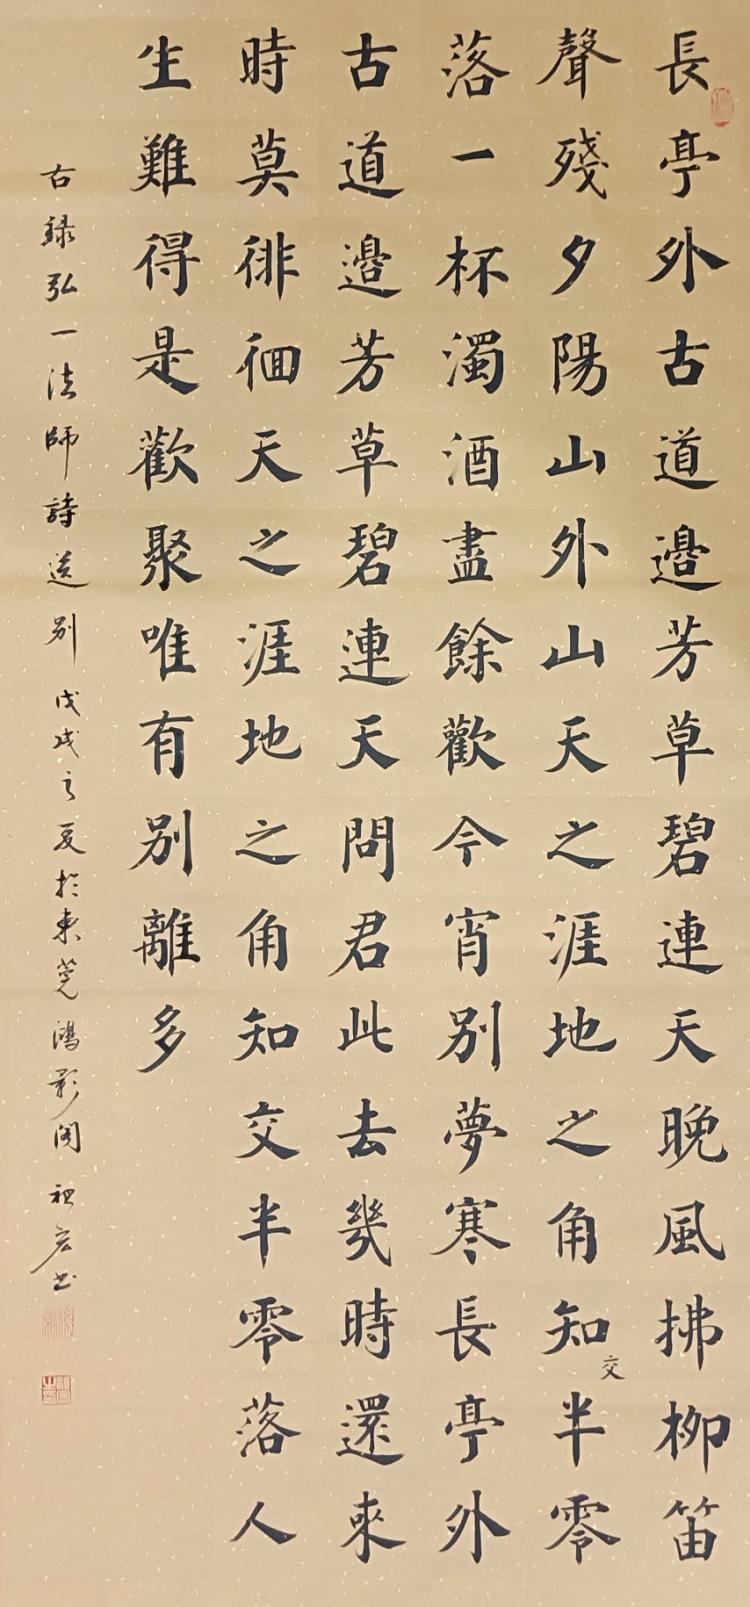 長亭外古道邊芳草碧連天晚風拂柳笛
聲殘夕陽山外山天之涯地之角知交半零
落一杯濁酒盡餘歡今宵別夢寒長亭外
古道邊芳草碧連天問君此去幾時還來
時莫徘徊天之涯地之角知交半零落人
生難得是歡聚唯有別離多
古錄弘一法師詩送別 戊戌之夏於東莞鴻影閣 祖宏书